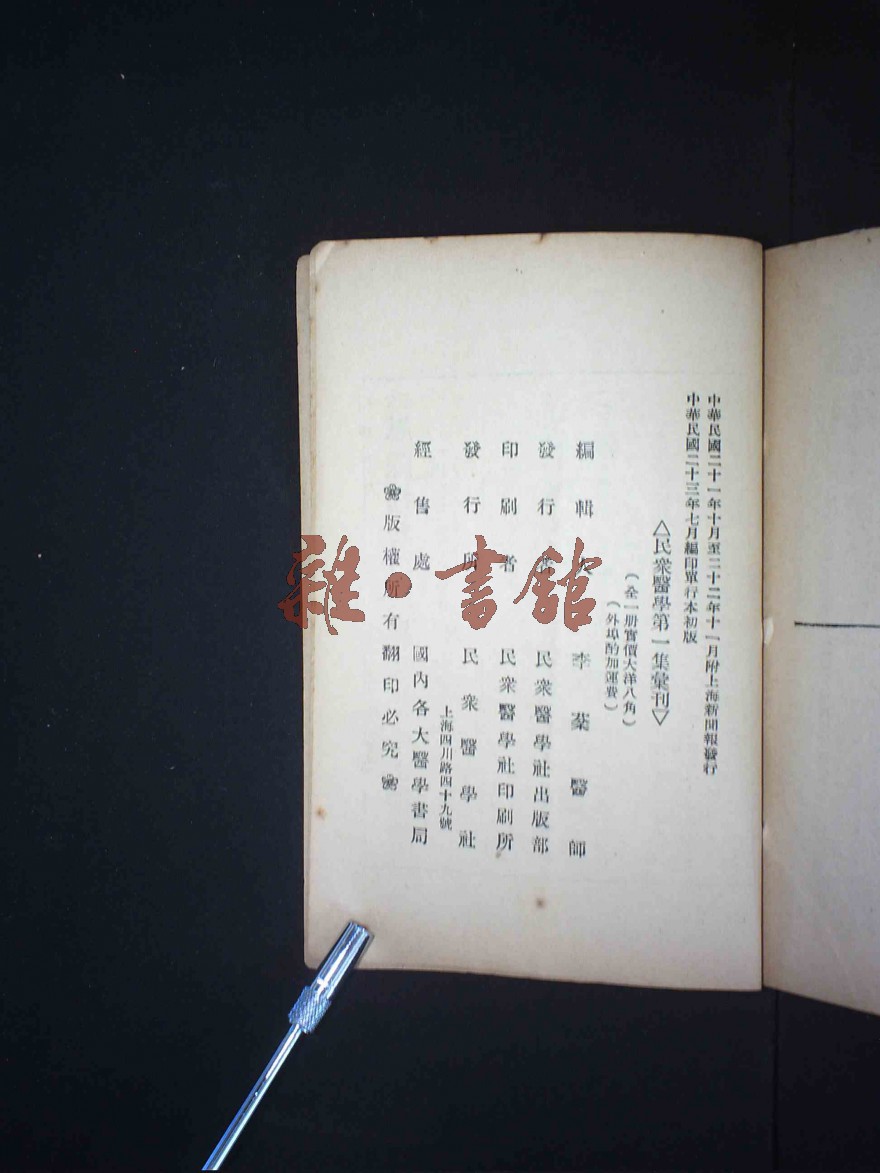 中華民國二十一年十月至二十二年十一月附上海新聞報發行
中華民國二十三年七月編印單行本初版
△民衆醫學第一集彙刊▽
(全一册實價大洋八角)
(外埠酌加運費)
編輯 李 醫師
發行 民衆醫學社出版部
印刷者 民衆醫學社印刷所
發行所 民衆醫學社
上海四川路四十九號
經售處 國內各大醫學書局
版權所有翻印必究
雜·書館